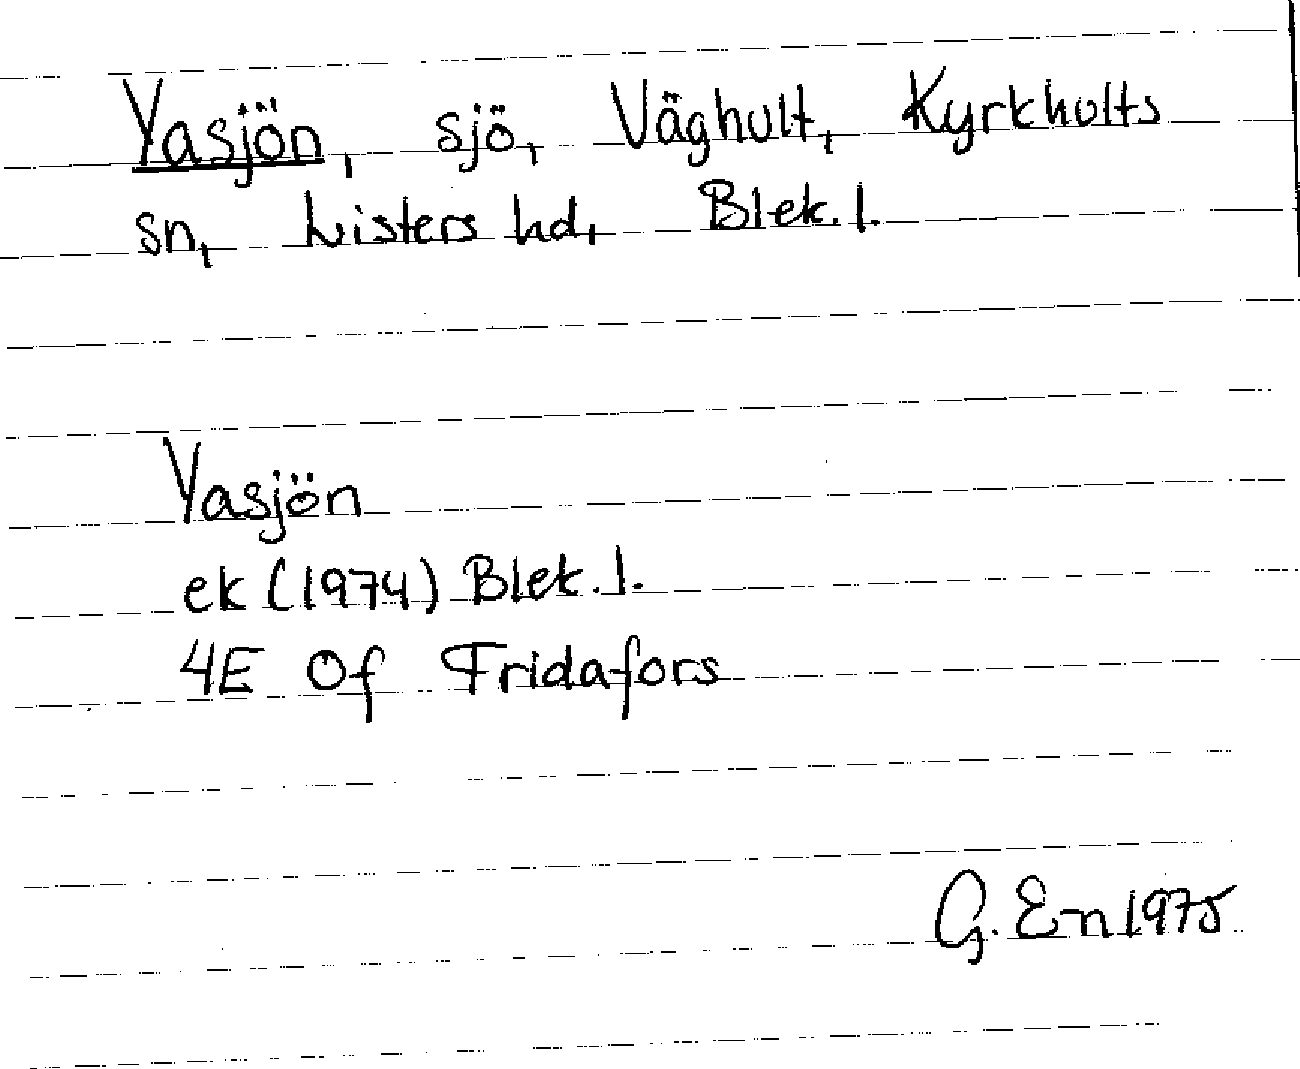 Vasjön, sjö, Väghult, Kyrkhults
sn, Listers hd, Blek. l.
Vasjön
ek (1974) Blek. l.
4E 0f Fridafors
G. En 1975